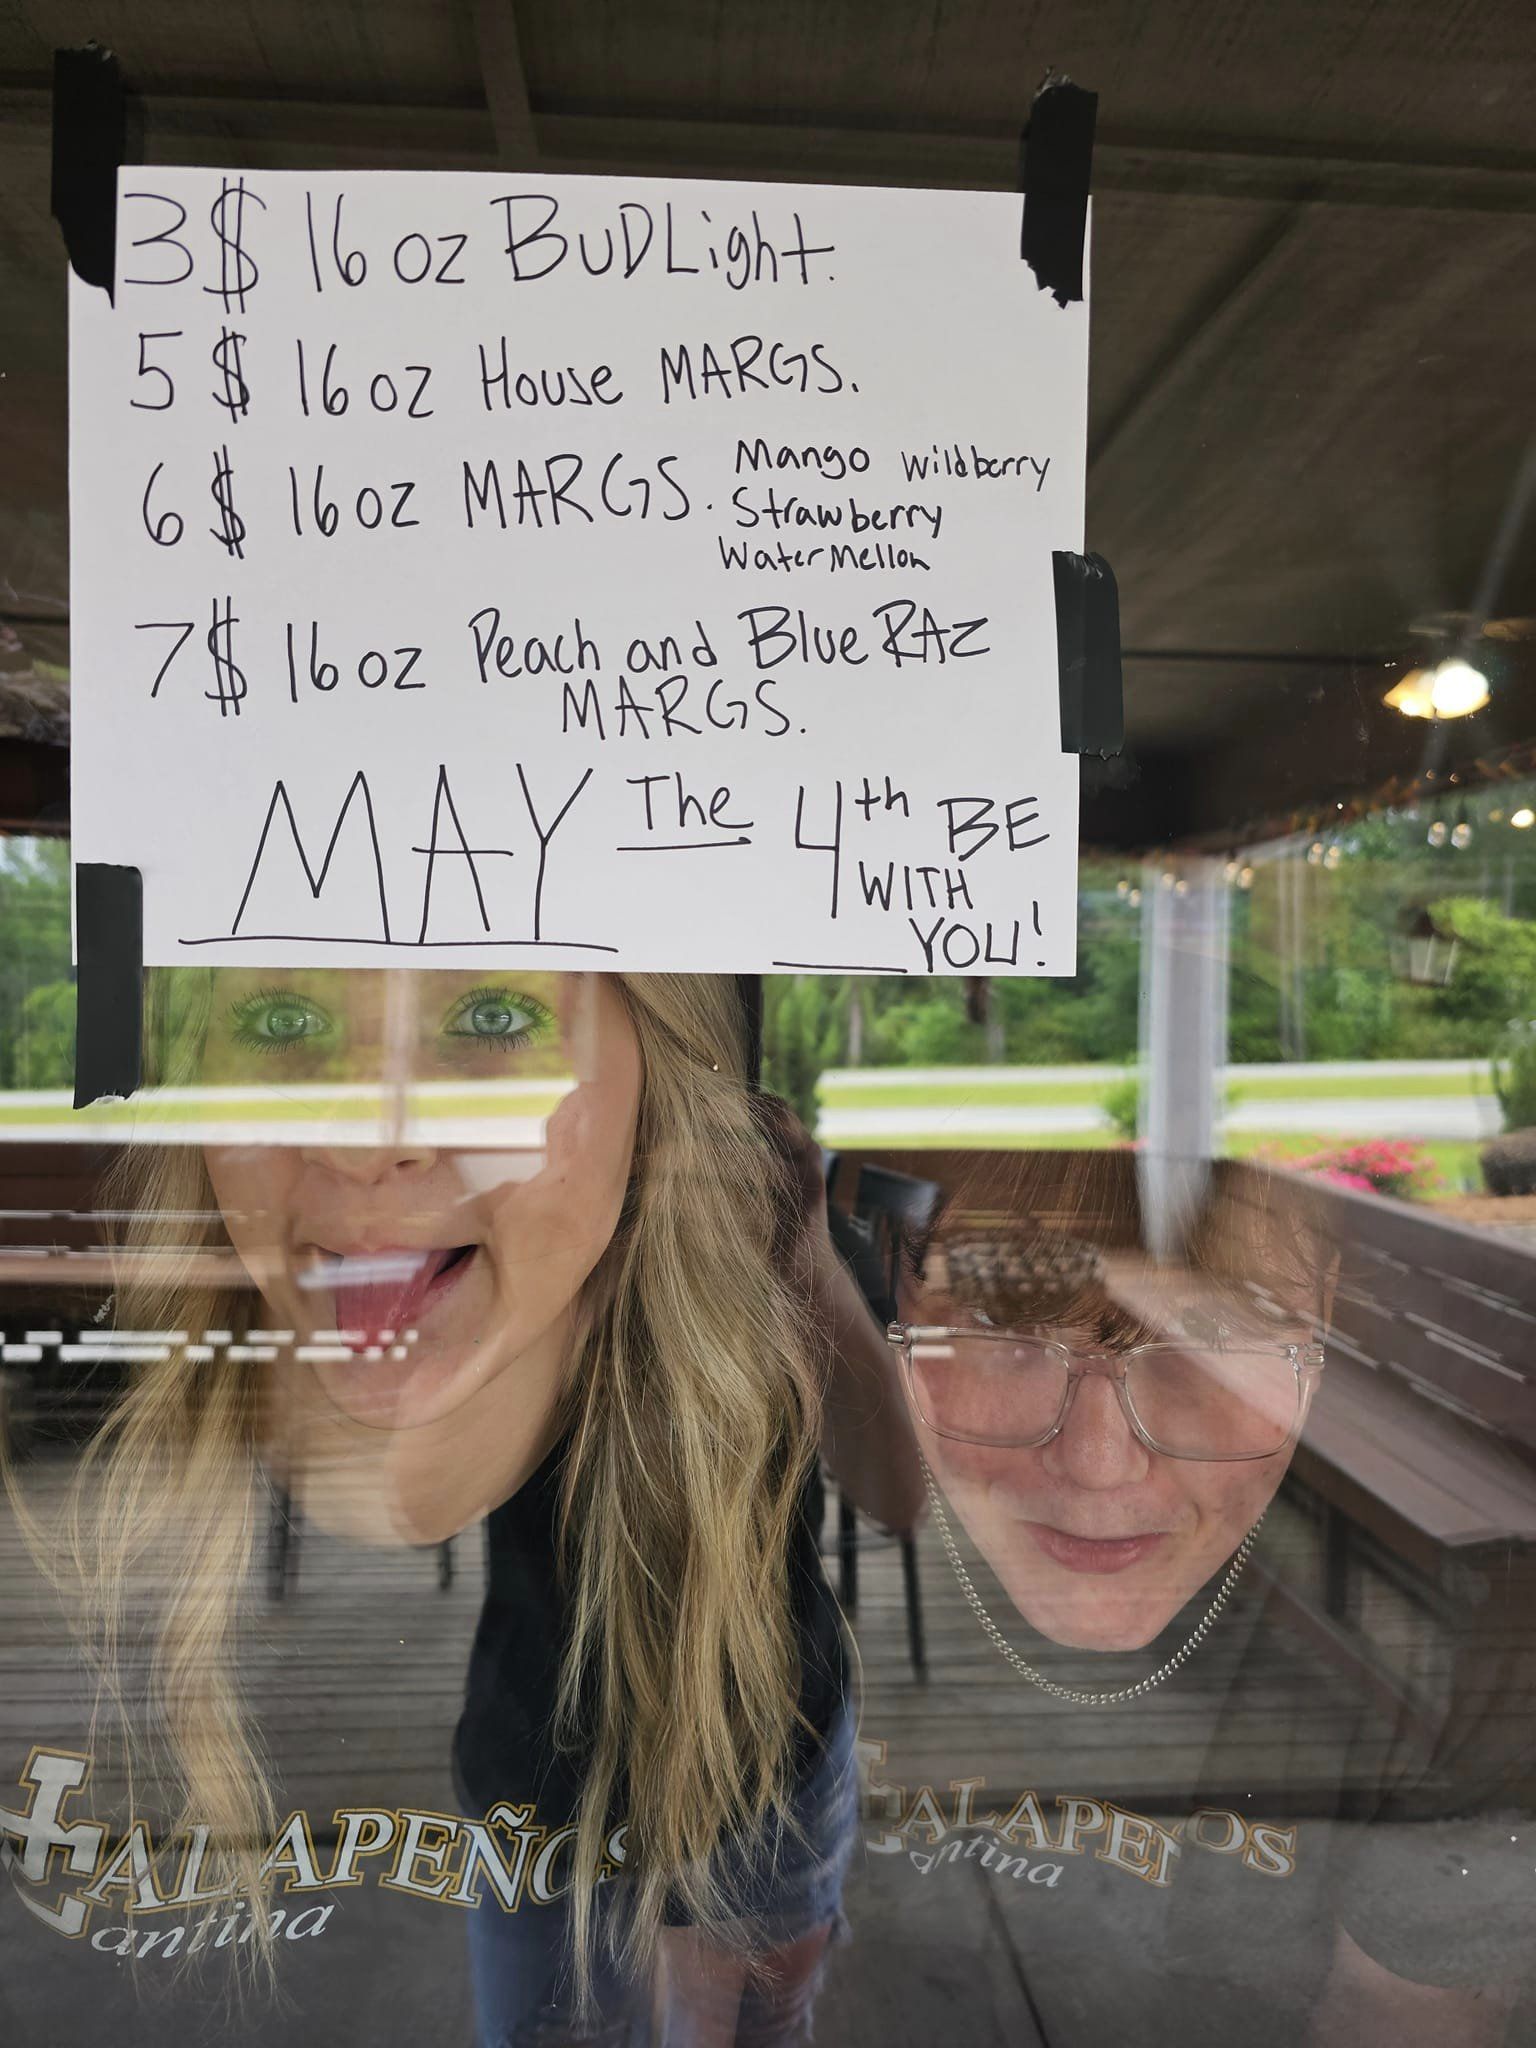 3$ 16 oz BUDLight.
5$ 16 oz House MARGS.
6$ 16 oz MARGS. Mango Wildberry
Strawberry
WaterMellon
7$ 16 oz Peach and Blue RAZ
MARGS.
MAY The 4th BE
WITH
YOU!
JALAPEÑOS
Cantina
JALAPEÑOS
Cantina